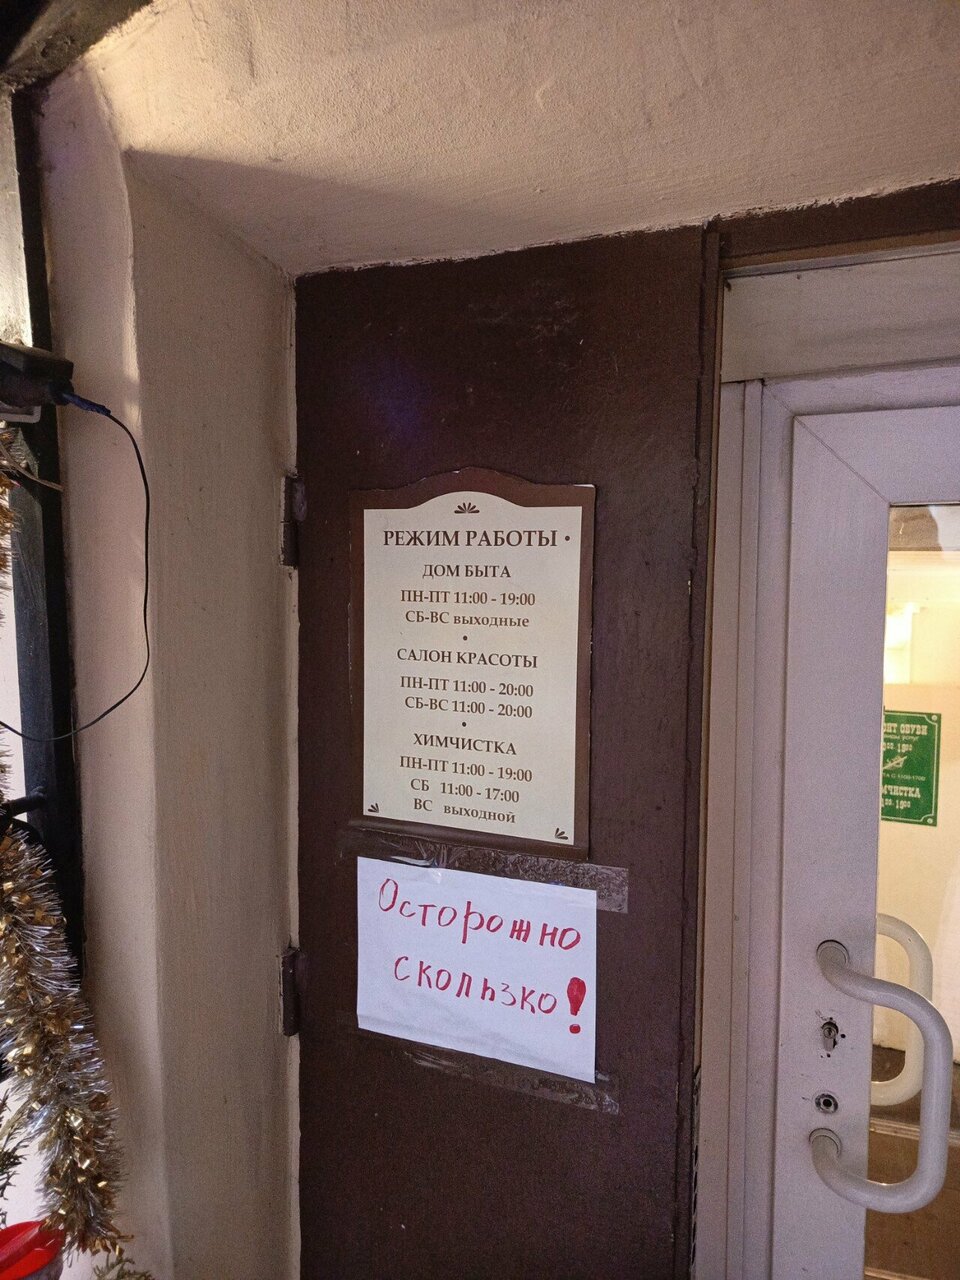 РЕЖИМ РАБОТЫ •
ДОМ БЫТА
ПН-ПТ 11:00 - 19:00
СБ-ВС выходные
•
САЛОН КРАСОТЫ
ПН-ПТ 11:00 - 20:00
СБ-ВС 11:00 - 20:00
•
ХИМЧИСТКА
ПН-ПТ 11:00 - 19:00
СБ 11:00 - 17:00
ВС выходной
Осторожно
скользко!
ОБУВИ